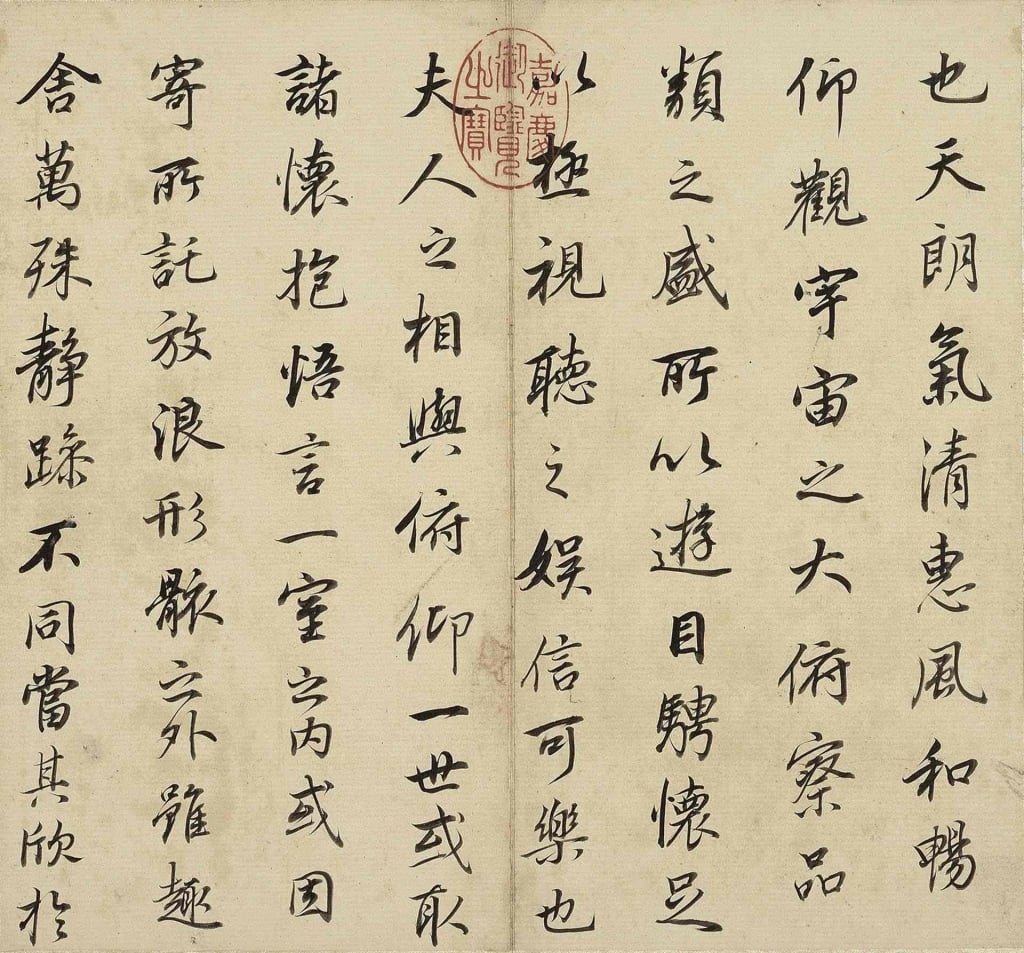 也天朗氣清惠風和暢
仰觀宇宙之大俯察品
類之盛所以遊目騁懷足
以極視聽之娛信可樂也
夫人之相與俯仰一世或取
諸懷抱悟言一室之内或因
寄所託放浪形骸之外雖趣
舍萬殊靜躁不同當其欣於
嘉慶
御覽
之寶